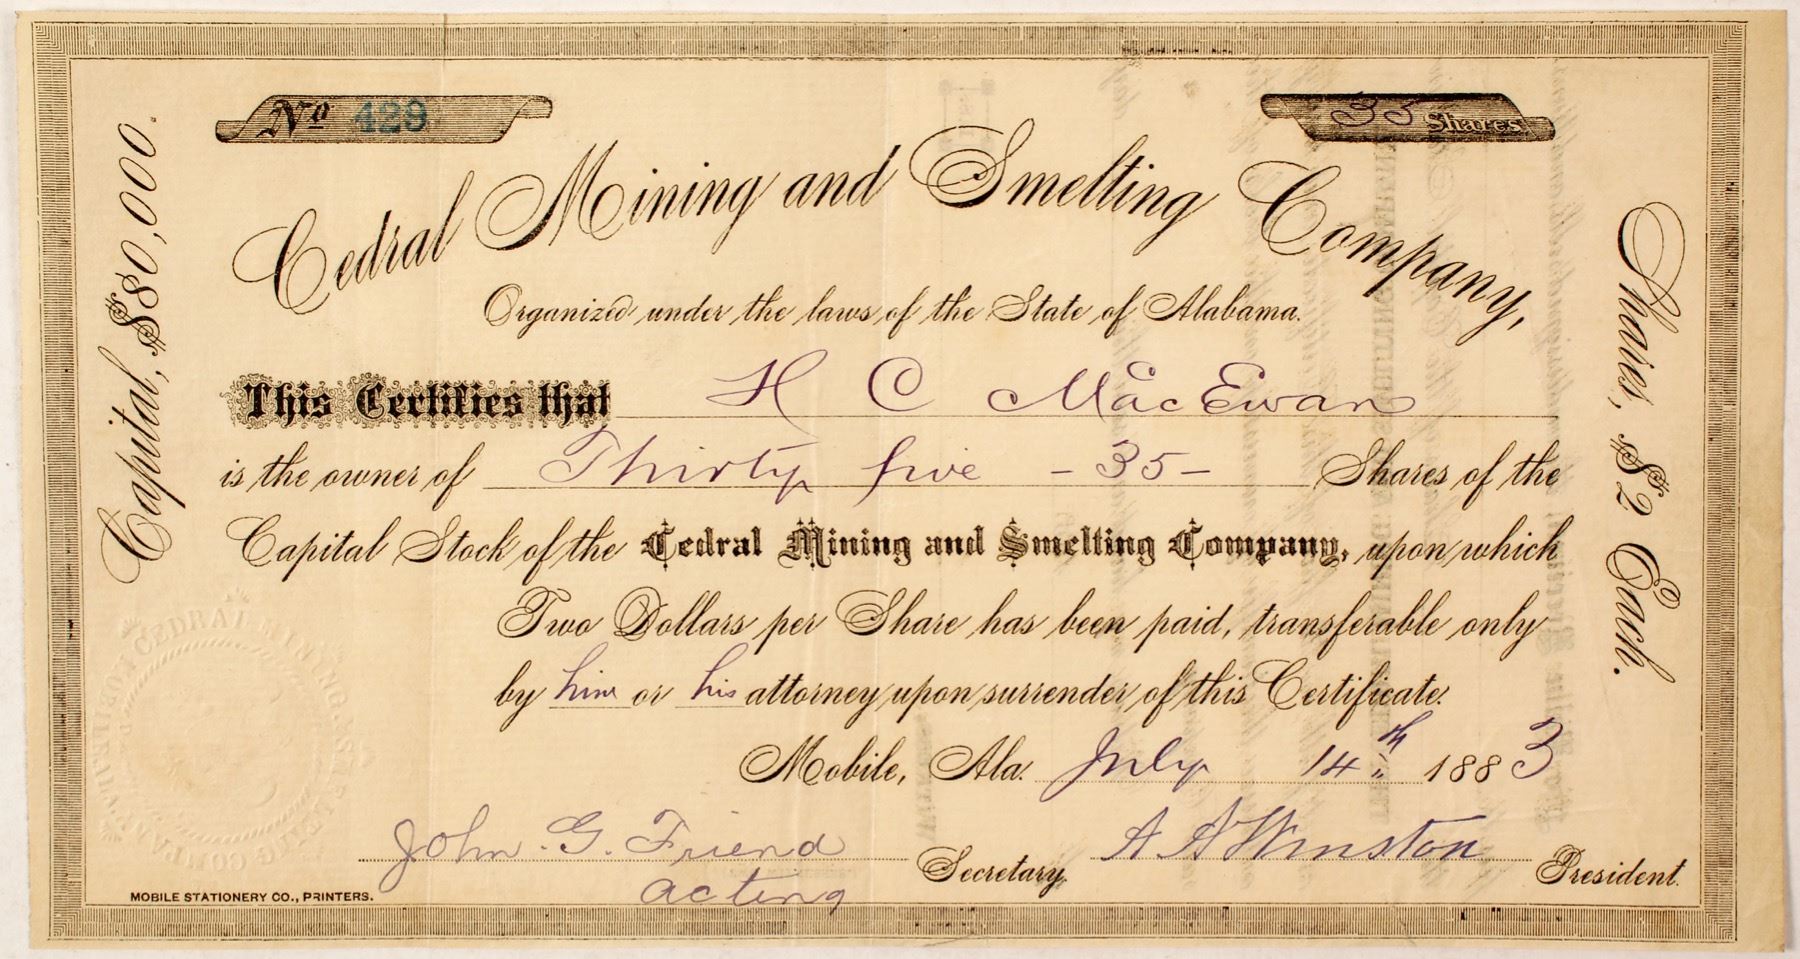 No 429
35 Shares
Cedral Mining and Smelting Company,
Organized under the laws of the State of Alabama.
Capital, $80,000.
Shares, $2 Each.
This Certifies that H C MacEwan
is the owner of Thirty five - 35 - Shares of the
Capital Stock of the Cedral Mining and Smelting Company, upon which
Two Dollars per Share has been paid, transferable only
by him or his attorney upon surrender of this Certificate.
Mobile, Ala. July 14th 1883
John. G. Friend Secretary. A A Winston President.
acting
CEDRAL MINING & SMELTING COMPANY
MOBILE STATIONERY CO., PRINTERS.